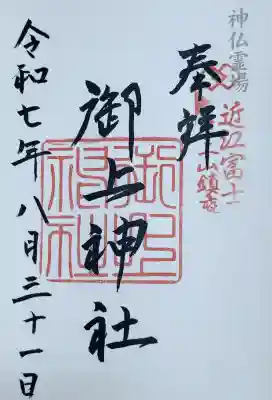 神仏霊場
近江富士
奉拝
御上神社
令和七年八月三十一日